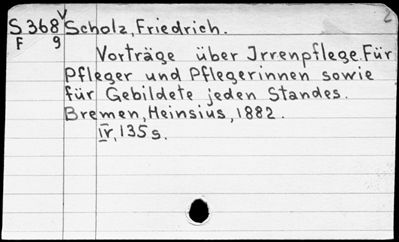 S 368 Scholz, Friedrich.
F 9
Vorträge über Irrenpflege. Für
Pfleger und Pflegerinnen sowie
für Gebildete jeden Standes.
Bremen, Heinsius, 1882.
IV, 135 s.